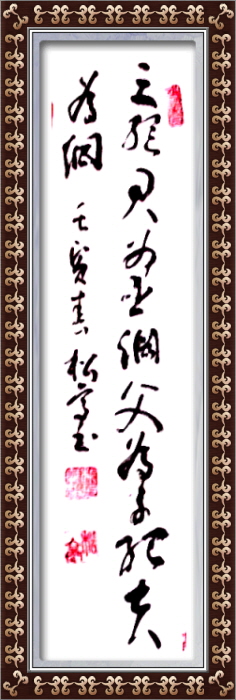 三綱君為臣綱父為子綱夫
為綱 壬寅春 松亭书